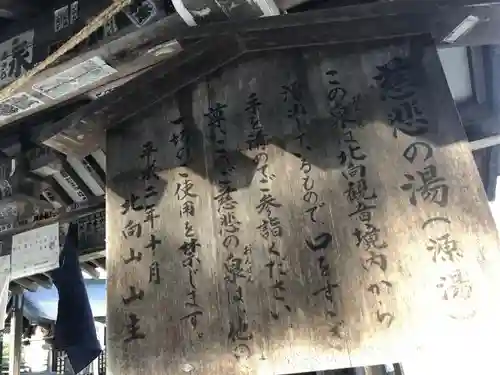 慈悲の湯(源湯)
この泉は北向観音境内から
湧出しているもので口をすすぎ
手を清めてご参詣ください
尊いこの慈悲の泉は他の
一切のご使用を禁じます。
平成二年十月
北向山山主